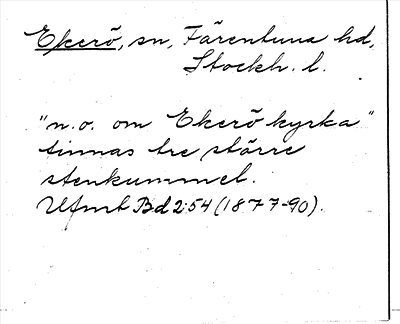 Ekerö, sn, Färentuna hd,
Stockh. l.
"n.o. om Ekerö kyrka"
finnas tre större
stenkummel.
Ufmt Bd 2:54 (1877-90).